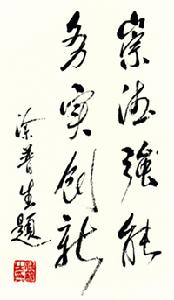 崇德强能
务实创新
涂普生题